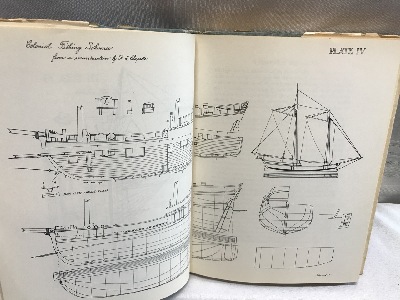 Colonial Fishing Schooner
from a reconstruction by H. I. Chapelle
PLATE IV